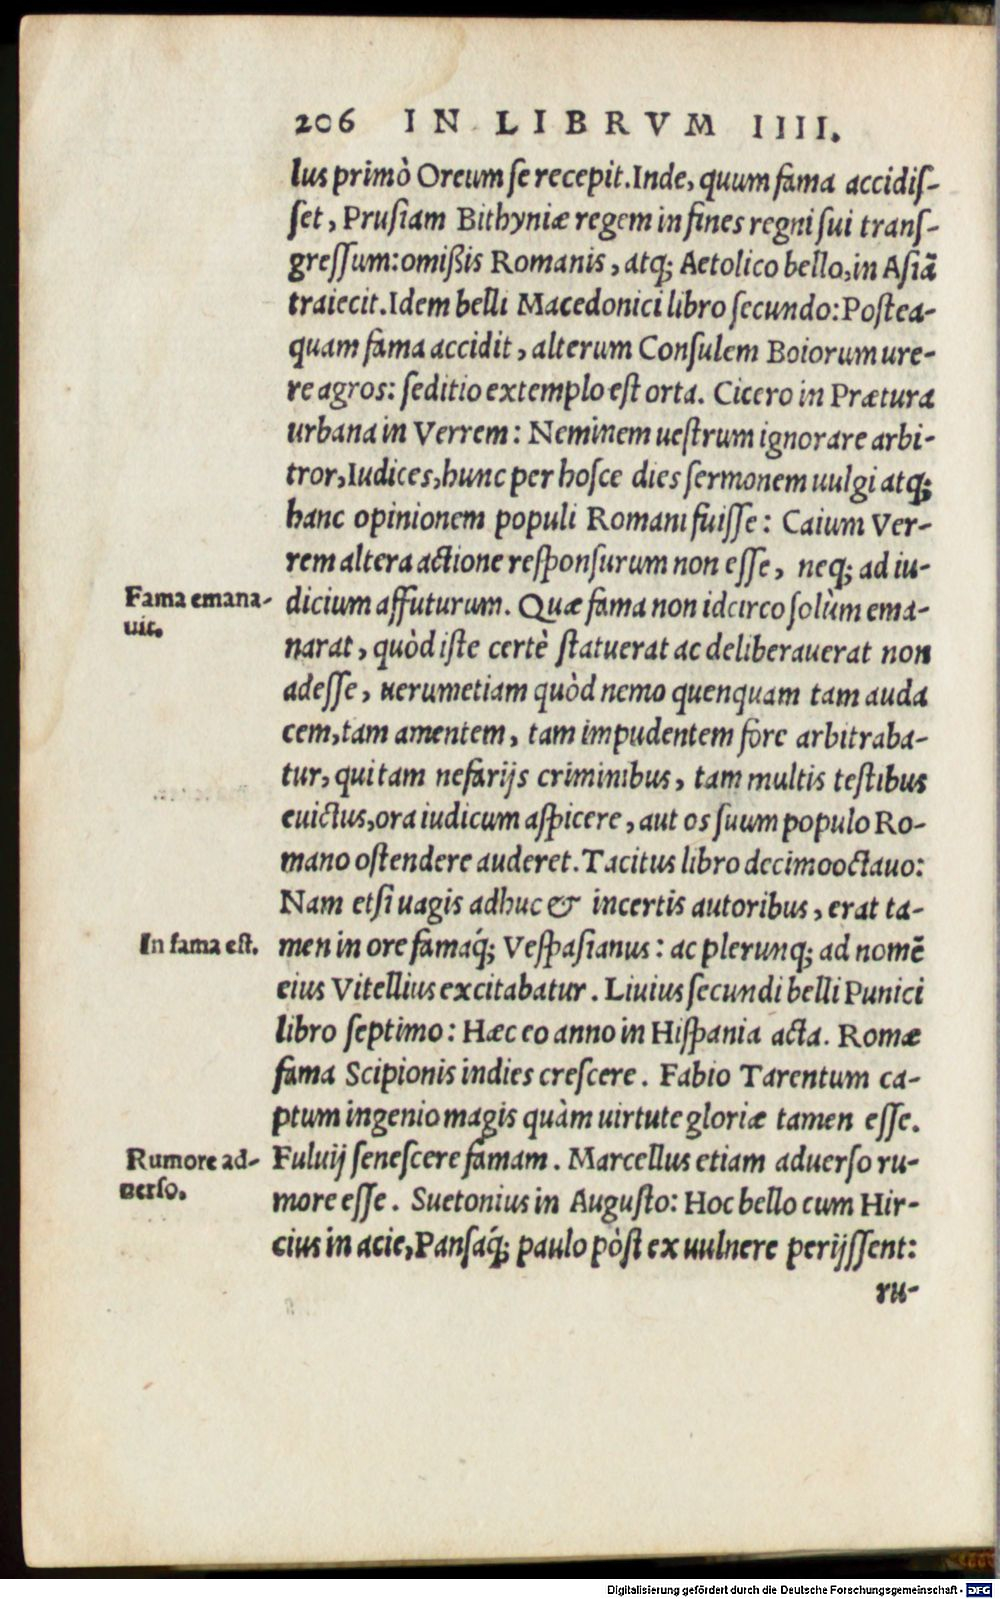 206 IN LIBRVM IIII.
lus primò Oreum se recepit. Inde, quum fama accidiſ-
ſet, Pruſiam Bithyniæ regem in fines regni ſui tranſ-
greſſum: omißis Romanis, atq; Aetolico bello, in Aſiã
traiecit. Idem belli Macedonici libro ſecundo: Poſtea-
quam fama accidit, alterum Conſulem Boiorum ure-
re agros: ſeditio extemplo eſt orta. Cicero in Prætura
urbana in Verrem: Neminem ueſtrum ignorare arbi-
tror, Iudices, hunc per hoſce dies ſermonem uulgi atq;
hanc opinionem populi Romani fuiſſe: Caium Ver-
rem altera actione reſponſurum non eſſe, neq; ad iu-
Fama emana-
uit.
dicium affuturum. Quæ fama non idcirco ſolùm ema-
narat, quòd iſte certè ſtatuerat ac deliberauerat non
adeſſe, uerumetiam quòd nemo quenquam tam auda
cem, tam amentem, tam impudentem fore arbitraba-
tur, qui tam nefarijs criminibus, tam multis teſtibus
euictus, ora iudicum aſpicere, aut os ſuum populo Ro-
mano oſtendere auderet. Tacitus libro decimooctauo:
Nam etſi uagis adhuc & incertis autoribus, erat ta-
In fama eſt.
men in ore famaq́; Veſpaſianus: ac plerunq; ad nomẽ
eius Vitellius excitabatur. Liuius ſecundi belli Punici
libro ſeptimo: Hæc eo anno in Hiſpania acta. Romæ
fama Scipionis indies creſcere. Fabio Tarentum ca-
ptum ingenio magis quàm uirtute gloriæ tamen eſſe.
Rumore ad-
uerſo.
Fuluij ſeneſcere famam. Marcellus etiam aduerſo ru-
more eſſe. Suetonius in Auguſto: Hoc bello cum Hir-
cius in acie, Panſaq́; paulo pòſt ex uulnere perijſſent:
ru-
Digitalisierung gefördert durch die Deutsche Forschungsgemeinschaft - DFG